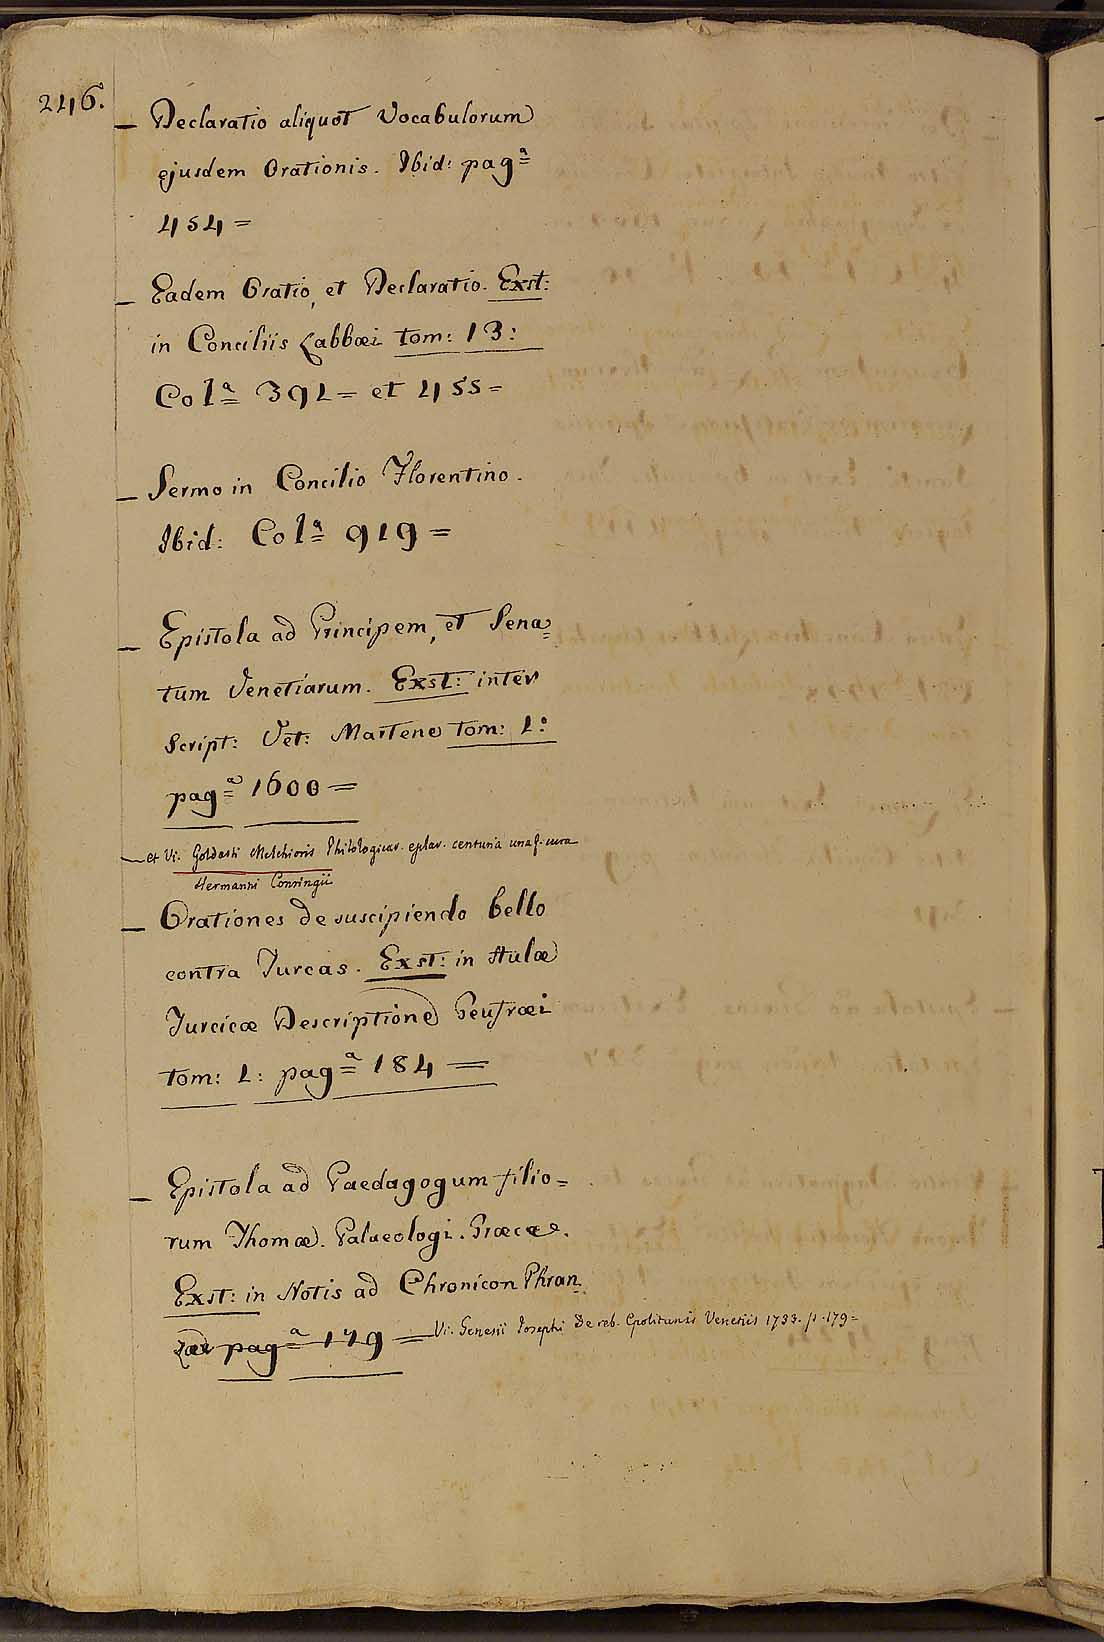 246.
— Declaratio aliquot Vocabulorum
ejusdem Orationis. Ibid: pagª
454 =
— Eadem Oratio, et Declaratio. Exst:
in Conciliis Labbæi tom: 13:
Colª 392 = et 455 =
— Sermo in Concilio Florentino.
Ibid: Colª 919 =
— Epistola ad Principem, et Sena=
tum Venetiarum. Exst: inter
Script: Vet: Martene tom: 1:
pagª 1600 =
— et Vi. Goldasti Melchioris Philologicar. eplar. centuria una
Hermanni Conringii
— Orationes de suscipiendo bello
contra Turcas. Exst: in Aulæ
Turcicæ Descriptione Geufræi
tom: 1: pagª 184 =
— Epistola ad Paedagogum filio=
rum Thomæ. Palaeologi. Græcæ.
Exst: in Notis ad Chronicon Phran
zæ pagª 179 = Vi. Genesii Josephi De reb. Cpolitanis Venetiis 1733. p. 179 =